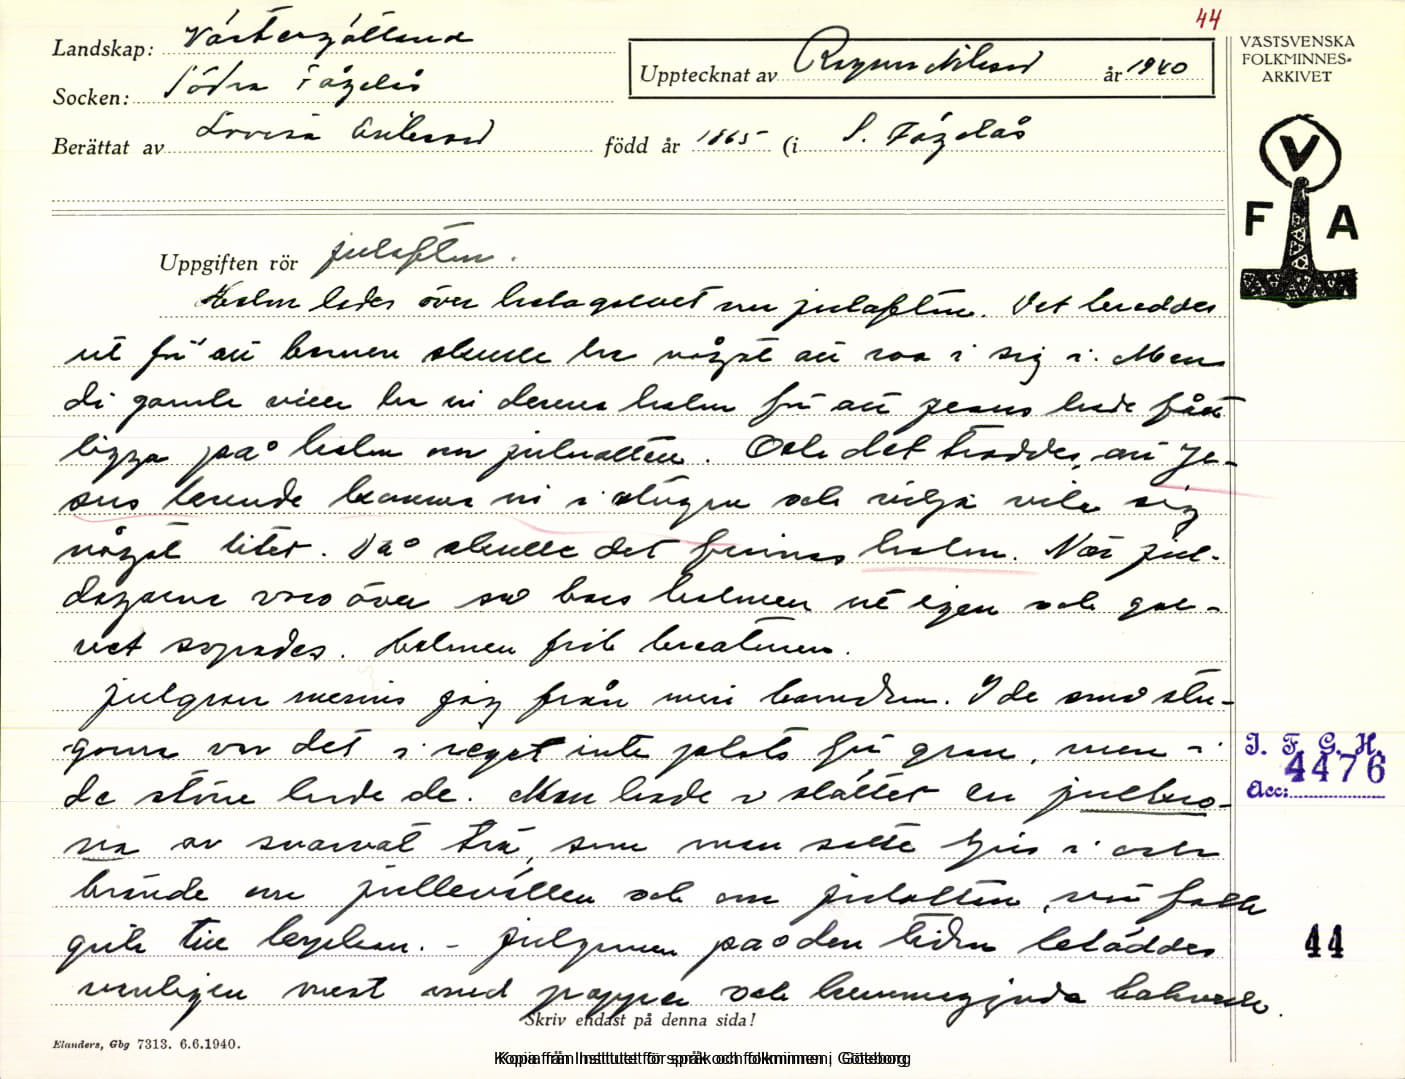 44
Landskap: Västergötland
Upptecknat av Ragnar Nilsson år 1940
VÄSTSVENSKA
FOLKMINNES-
ARKIVET
Socken: Södra Fågelås
Berättat av Lovisa född år 1865 (i S. Fågelås
V
F A
Uppgiften rör julafton.
Halm lades över hela golvet om julafton. Det breddes
ut för att barnen skulle ha något att roa i sig i. Men
di gamle ville ha in denna halm för att Jesus hade fått
ligga på halm om julnatten. Och det troddes, att Je-
sus kunde komma in i stugan och vilja vila sig
något litet. Då skulle det finnas halm. När jul-
dagarna voro över så bars halmen ut igen och gol-
vet sopades. Halmen fick kreaturen.
Julgran minns jag från min barndom. I de små stu-
gorna var det i regel inte plats för gran, men i
de större hade de. Man hade i stället en julkro-
na av svarvat trä, som man satte ljus i och
brände om julkvällen och om julottan, när folk
gick till kyrkan. - Julgranen på den tiden kläddes
vanligen mest med papper och hemmagjorda bakverk.
J. F. G. H.
4476
Acc:
44
Skriv endast på denna sida!
Elanders, Gbg 7313. 6.6.1940.
Kopia från Institutet för språk och folkminnen i Göteborg